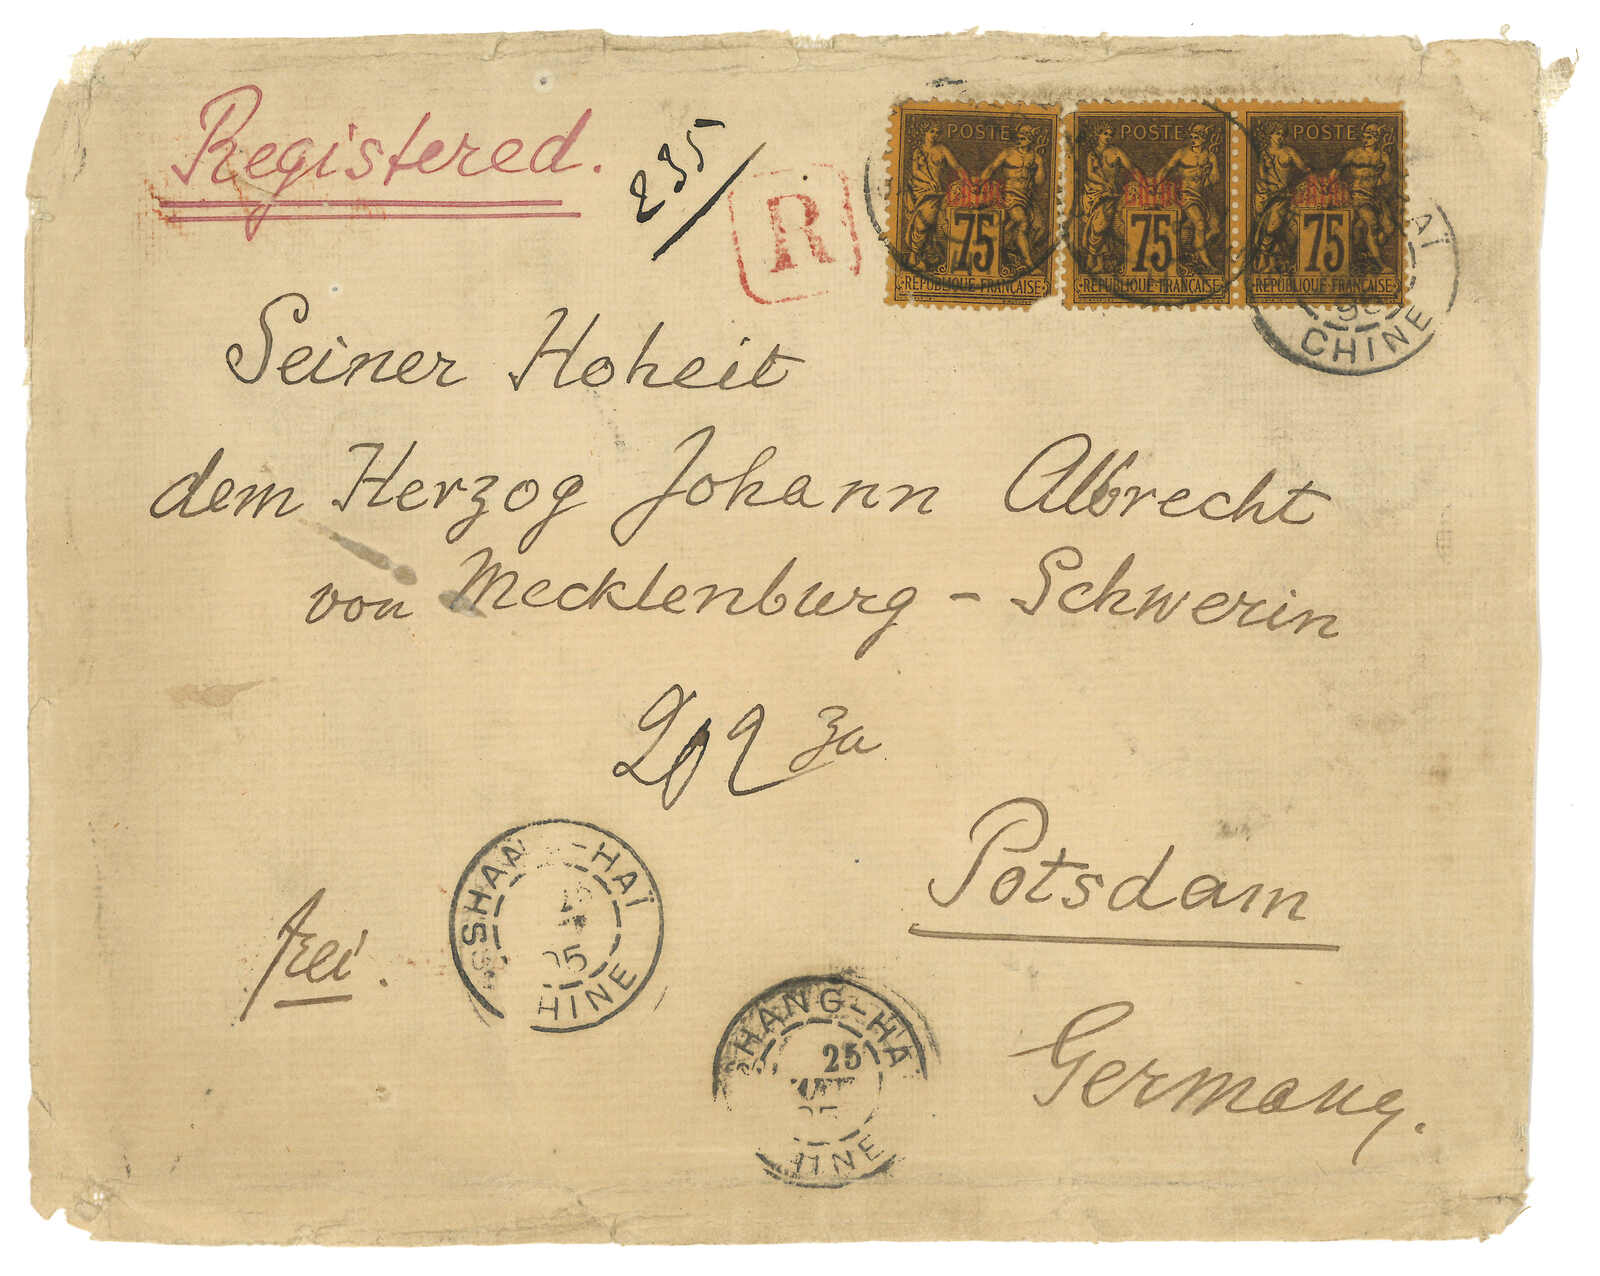 Registered.
235
R
POSTE
75
RÉPUBLIQUE FRANÇAISE
POSTE
75
RÉPUBLIQUE FRANÇAISE
POSTE
75
RÉPUBLIQUE FRANÇAISE
AÏ
CHINE
Seiner Hoheit
dem Herzog Johann Albrecht
von Mecklenburg - Schwerin
zu
Potsdam
Germany.
frei.
SHAN -HAÏ
25
HINE
HANG-HA
25
HINE